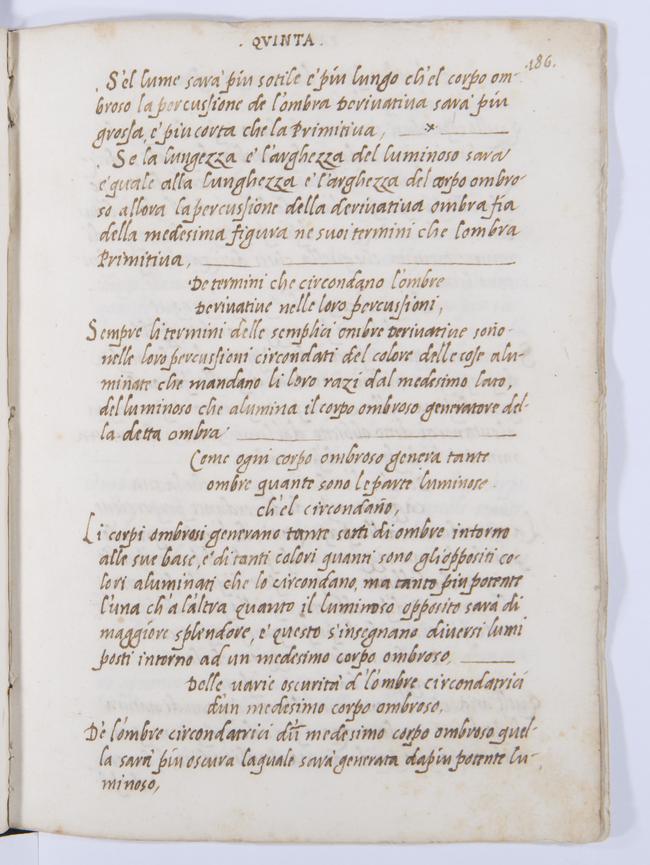 . QVINTA .
.186.
. S'el lume sara piu sotile e' piu lungo ch'el corpo om-
broso la percussione de l'ombra derivativa sara piu
grossa, e' piu corta che la Primitiva,
. Se la lungezza e' l'arghezza del luminoso sara
e'guale alla lunghezza e' l'arghezza del corpo ombro-
so, allora la percussione della derivativa ombra fia
della medesima figura ne suoi termini che l'ombra
Primitiva,
De termini che circondano l'ombre
derivative nelle loro percussioni,
Sempre li termini delle semplici ombre derivative sono
nelle loro percussioni circondati del colore delle cose alu-
minate che mandano li loro razi dal medesimo lato,
del luminoso che alumina il corpo ombroso generatore del-
la detta ombra
Come ogni corpo ombroso genera tante
ombre quante sono le parte luminose
ch'el circondano,
Li corpi ombrosi generano tante sorti di ombre intorno
alle sue base, e' di tanti colori quanti sono gli oppositi co-
lori aluminati che lo circondano, ma tanto piu potente
l'una ch'a l'altra quanto il luminoso opposito sara di
maggiore splendore, e' questo s'insegnano diversi lumi
posti intorno ad un medesimo corpo ombroso,
Delle varie oscurità d'l'ombre circondatrici
d'un medesimo corpo ombroso.
De l'ombre circondatrici d'ū medesimo corpo ombroso quel-
la sara piu oscura la quale sara generata da piu potente lu-
minoso,